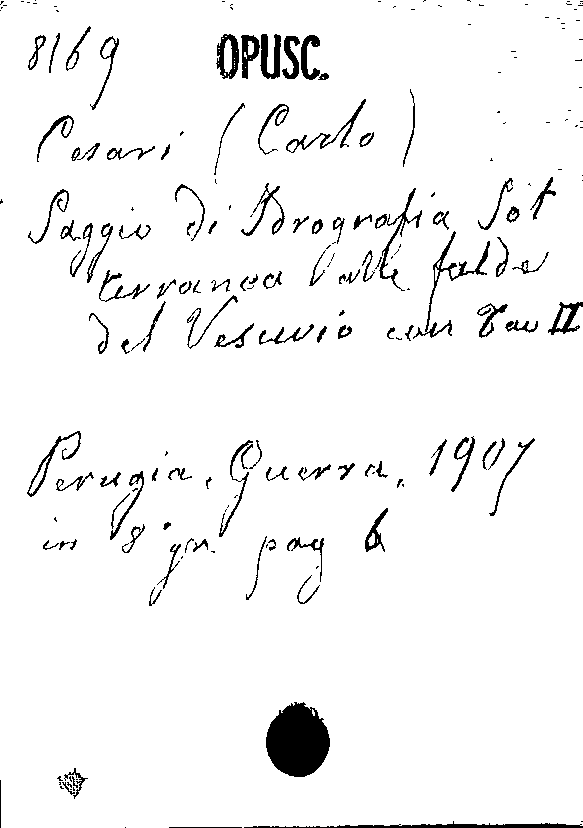 8169 OPUSC.
Cesari (Carlo)
Saggio di Idrografia Sot
terranea alle falde
del Vesuvio con Tav II
Perugia, Guerra, 1907
in 8° gr. pag 6